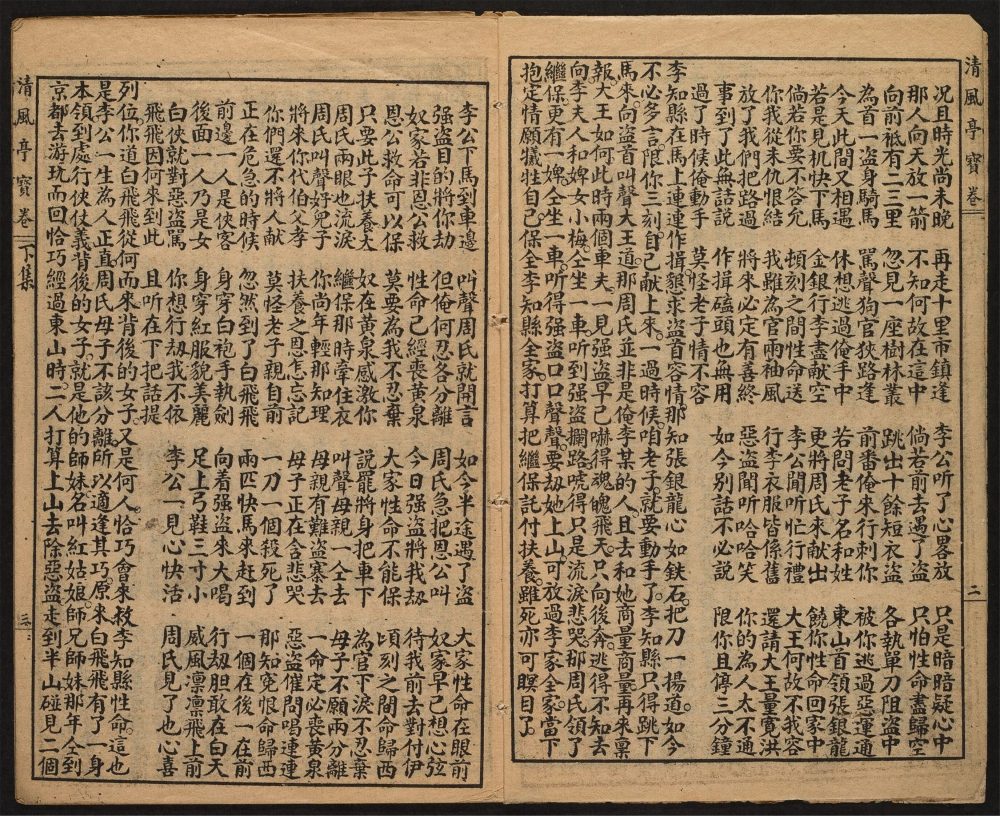 清風亭寶卷 二
況且時光尚未晚 再走十里市鎮逢 李公听了心畧放 只是暗暗疑心中
那人向天放一箭 不知何故在這中 倘若前去遇了盗 只怕性命盡歸空
向前祗有二三里 忽見一座樹林叢 跳出十餘短衣盗 各執單刀阻盗中
為首一盗身騎馬 駡聲狗官狹路逢 前番俺來行刺你 被你逃過惡運通
今天此間又相遇 休想逃過俺手中 若問老子名和姓 東山首領張銀龍
若是見机快下馬 金銀行李盡献空 更將周氏來献出 饒你性命回家中
倘若你要不答允 頃刻之間性命送 李公聞听忙行禮 大王何故不我容
你我從未仇恨結 我雖為官兩袖風 行李衣服皆係舊 還請大王量寬洪
放了我們把路過 將來必定有喜終 惡盗聞听哈哈笑 你的為人太不通
事到了此無話説 作揖磕頭也無用 如今别話不必説 限你且停三分鐘
過了時候俺動手 莫怪老子情不容
李知縣在馬上連連作揖懇求盗首容情那知張銀龍心如鉄石把刀一揚道如今
不必多言限你三刻自己献上來一過時候咱老子就要動手了李知縣只得跳下
馬來向盗首叫聲大王道那周氏並非是俺李某的人且去和她商量商量再來稟
報大王如何此時兩個車夫一見强盗早已嚇得魂魄飛天只向後奔逃得不知去
向李夫人和婢女小梅仝坐一車听到强盗攔路唬得只是流淚悲哭那周氏領了
繼保更有一婢仝坐一車听得强盗口口聲聲要劫她上山可放過李家全家當下
抱定情願犧牲自己保全李知縣全家打算把繼保託付扶養雖死亦可瞑目了
李公下馬到車邊 叫聲周氏就開言 如今半途遇了盗 大家性命在眼前
强盗目的將你劫 但俺何忍各分離 周氏急把恩公叫 奴家早已想心弦
奴家若非恩公救 性命已經喪黄泉 今日强盗將我劫 待我前去對付伊
恩公救命可以保 莫要為我不忍棄 大家性命不能保 頃刻之間命歸西
只要此子扶養大 奴在黄泉感激你 説罷將身把車下 為官下淚不忍棄
周氏兩眼也流淚 繼保那時牽住衣 叫聲母親一仝去 母子不願兩分離
周氏叫聲好兒子 你尚年輕那知理 母親有難盗寨去 一命定必喪黄泉
將來你代伯父孝 扶養之恩怎忘記 母子正在含悲哭 惡盗催問喝連連
你們還不將人献 莫怪老子親自前 一刀一個殺死了 那知寃恨命歸西
正在危急的時候 忽然到了白飛飛 兩匹快馬來赶到 一個在後一在前
前邊一人是俠客 身穿白袍手執劍 向着强盗來大喝 行劫胆敢在白天
後面一人乃是女 身穿紅服貌美麗 足上弓鞋三寸小 威風凛凛飛上前
白俠就對惡盗駡 你想行劫我不依 李公一見心快活 周氏見了也心喜
飛飛因何來到此 且听在下把話提
列位你道白飛飛從何而來背後的女子又是何人恰巧會來救李知縣性命這也
是李公一生為人正直周氏母子不該分離所以適逢其巧原來白飛飛有了一身
本領到處行俠仗義背後的女子就是他的師妹名叫紅姑娘師兄師妹那年仝到
京都去游玩而回恰巧經過東山時二人打算上山去除惡盗走到半山碰見二個
清風亭寶卷 下集 三